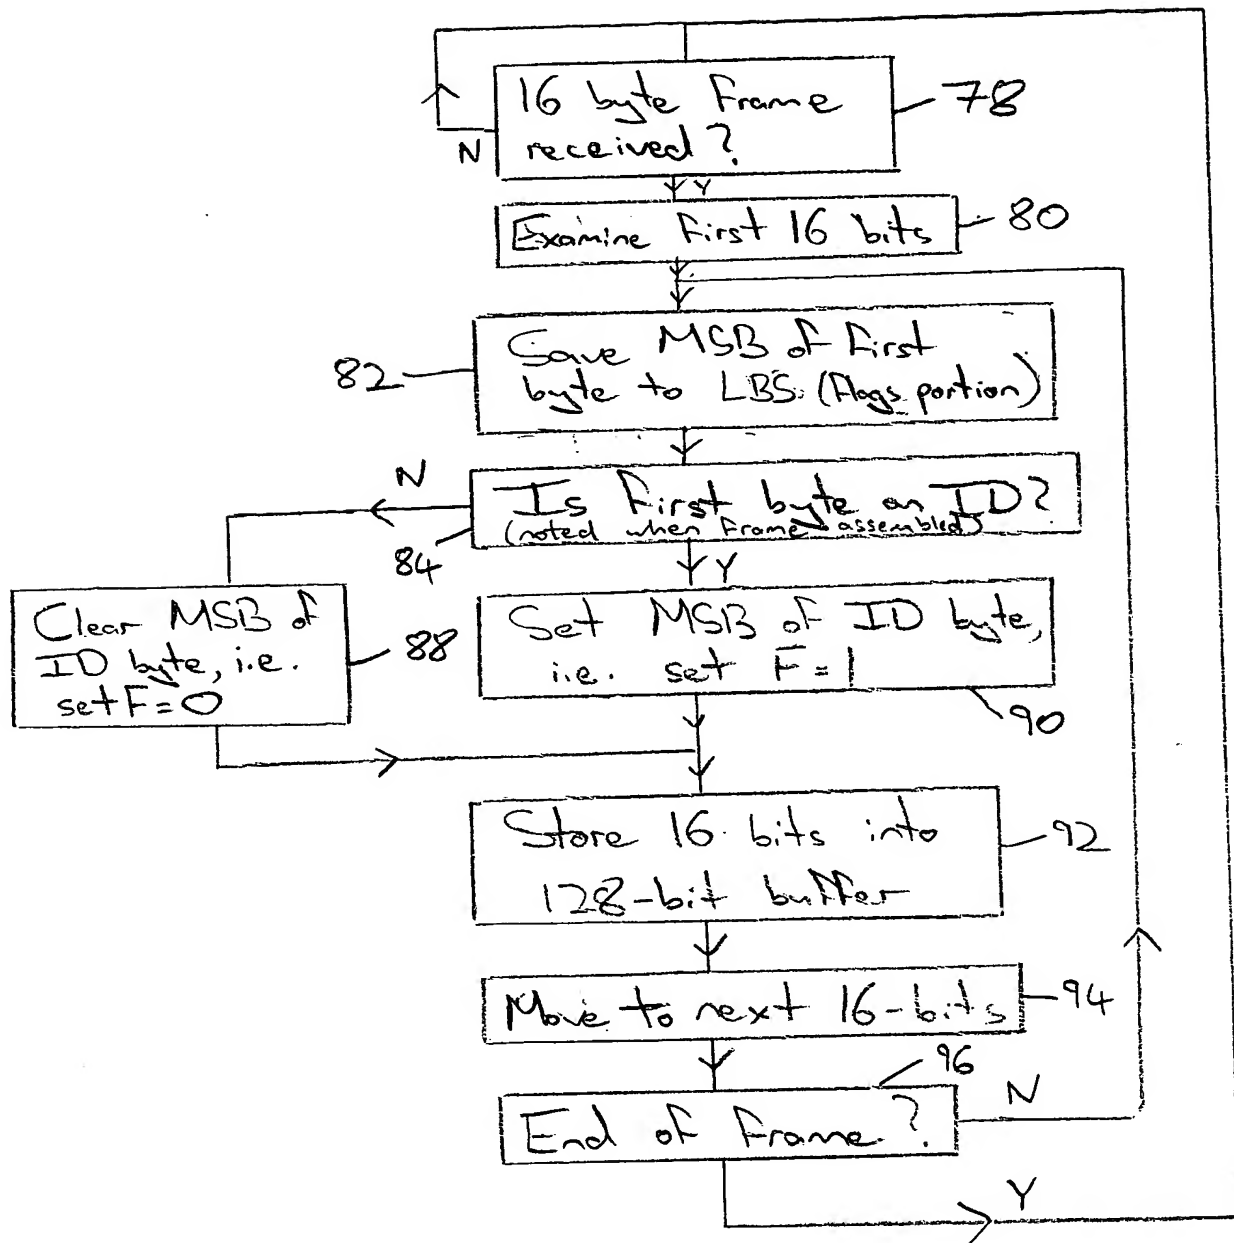 16 byte frame
received?
78
N
Y
Examine first 16 bits
80
Save MSB of first
byte to LBS (flags portion)
82
N
Is first byte an ID?
(noted when frame assembled)
84
Y
Clear MSB of
ID byte, i.e.
set F=0
88
Set MSB of ID byte,
i.e. set F=1
90
Store 16 bits into
128-bit buffer
92
Move to next 16-bits
94
96
End of frame?
N
Y